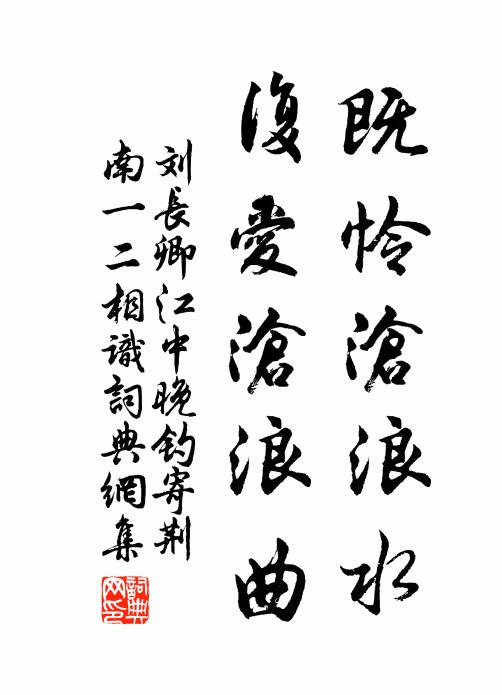 既怜滄浪水
復愛滄浪曲
刘長卿江中晚釣寄荆
南一二相識詞典網集